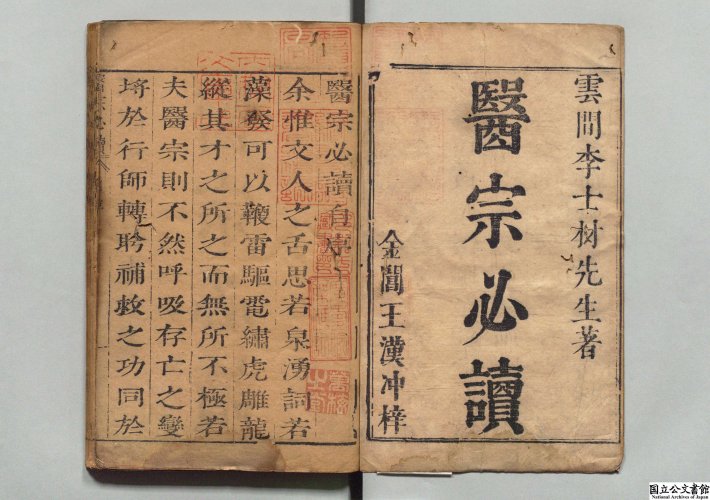 雲間李士材先生著
醫宗必讀
金閶王漢冲梓
醫宗必讀自序
余惟文人之舌思若泉湧詞若
藻發可以鞭雷驅電繡虎雕龍
縱其才之所之而無所不極若
夫醫宗則不然呼吸存亡之變
埒於行師轉盼補救之功同於
国立公文書館
National Archives of Japan